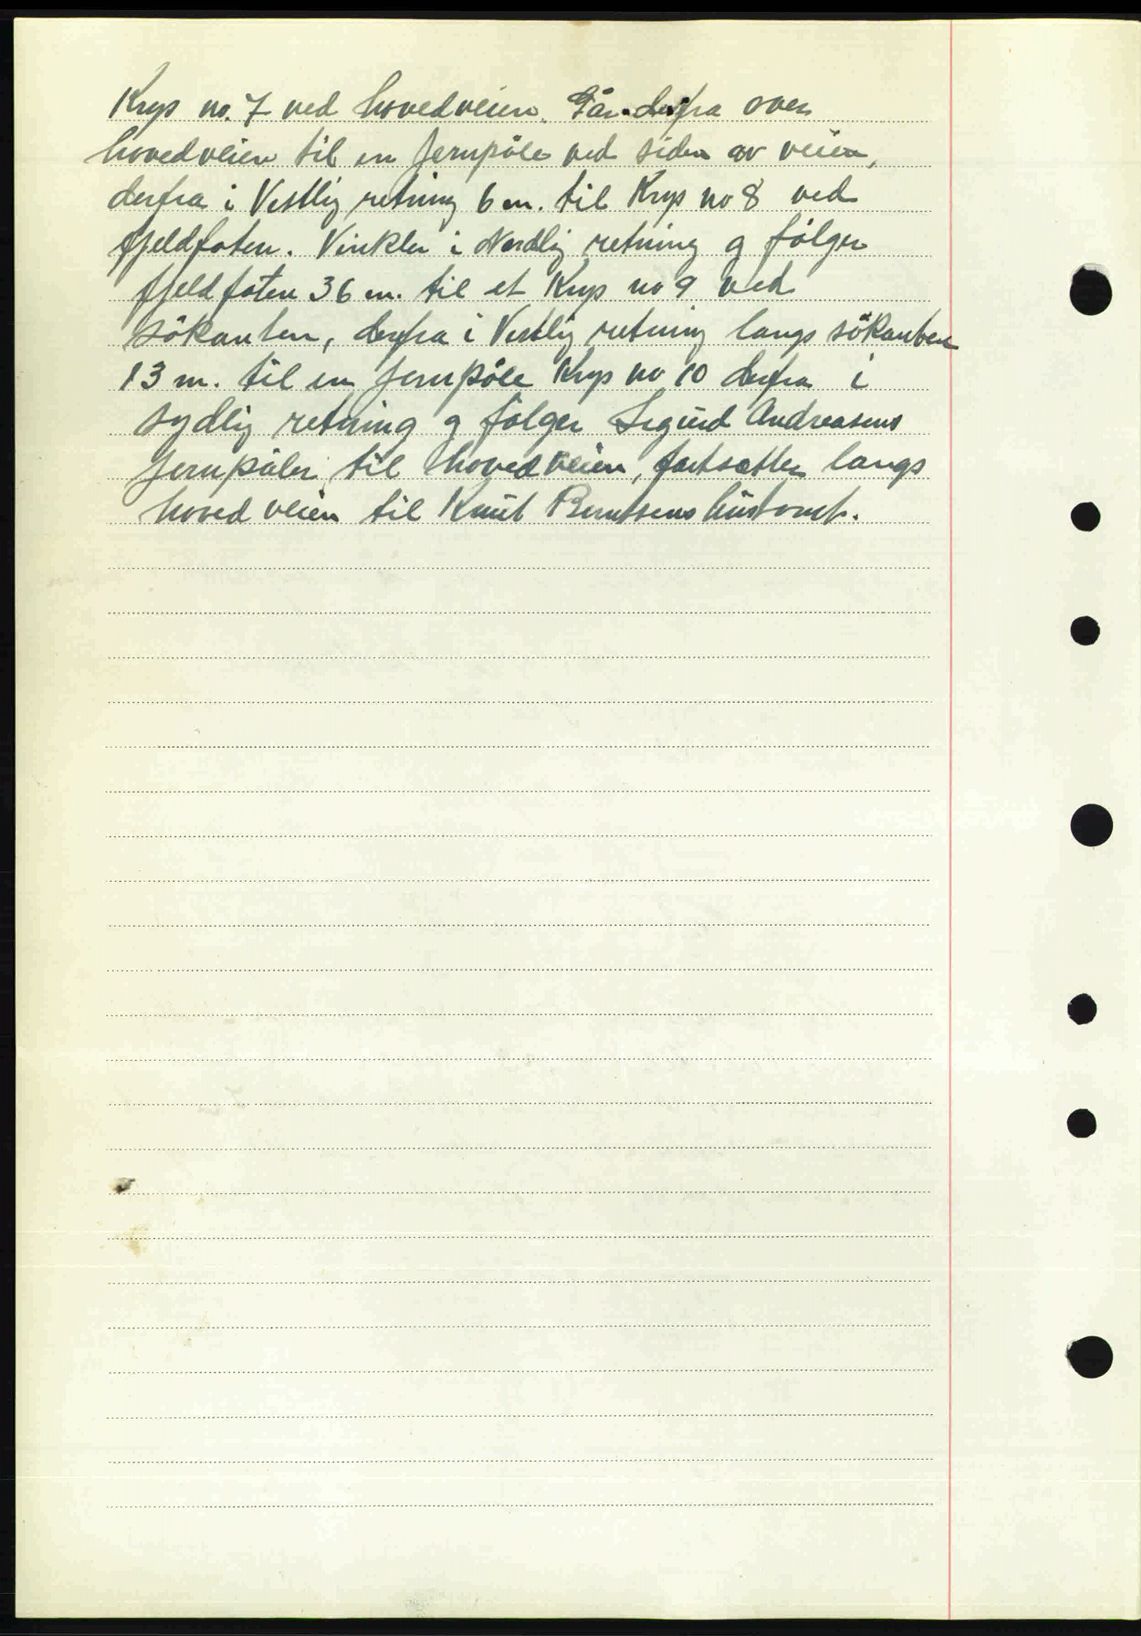 Krys no. 7 ved hovedveien. Går derfra over
hovedveien til en Jernpåle ved siden av veien,
derfra i Vestlig retning 6 m. til Krys no 8 ved
fjeldfoten. Vinkler i Nordlig retning og følger
fjeldfoten 36 m. til et Krys no 9 ved
søkanten, derfra i Vestlig retning langs søkanten
13 m. til en Jernpåle Krys no 10 derfra i
sydlig retning og følger Sigurd Andreasens
Jernpåler til hovedveien, fortsætter langs
hovedveien til Knut Berntsens hustomt.